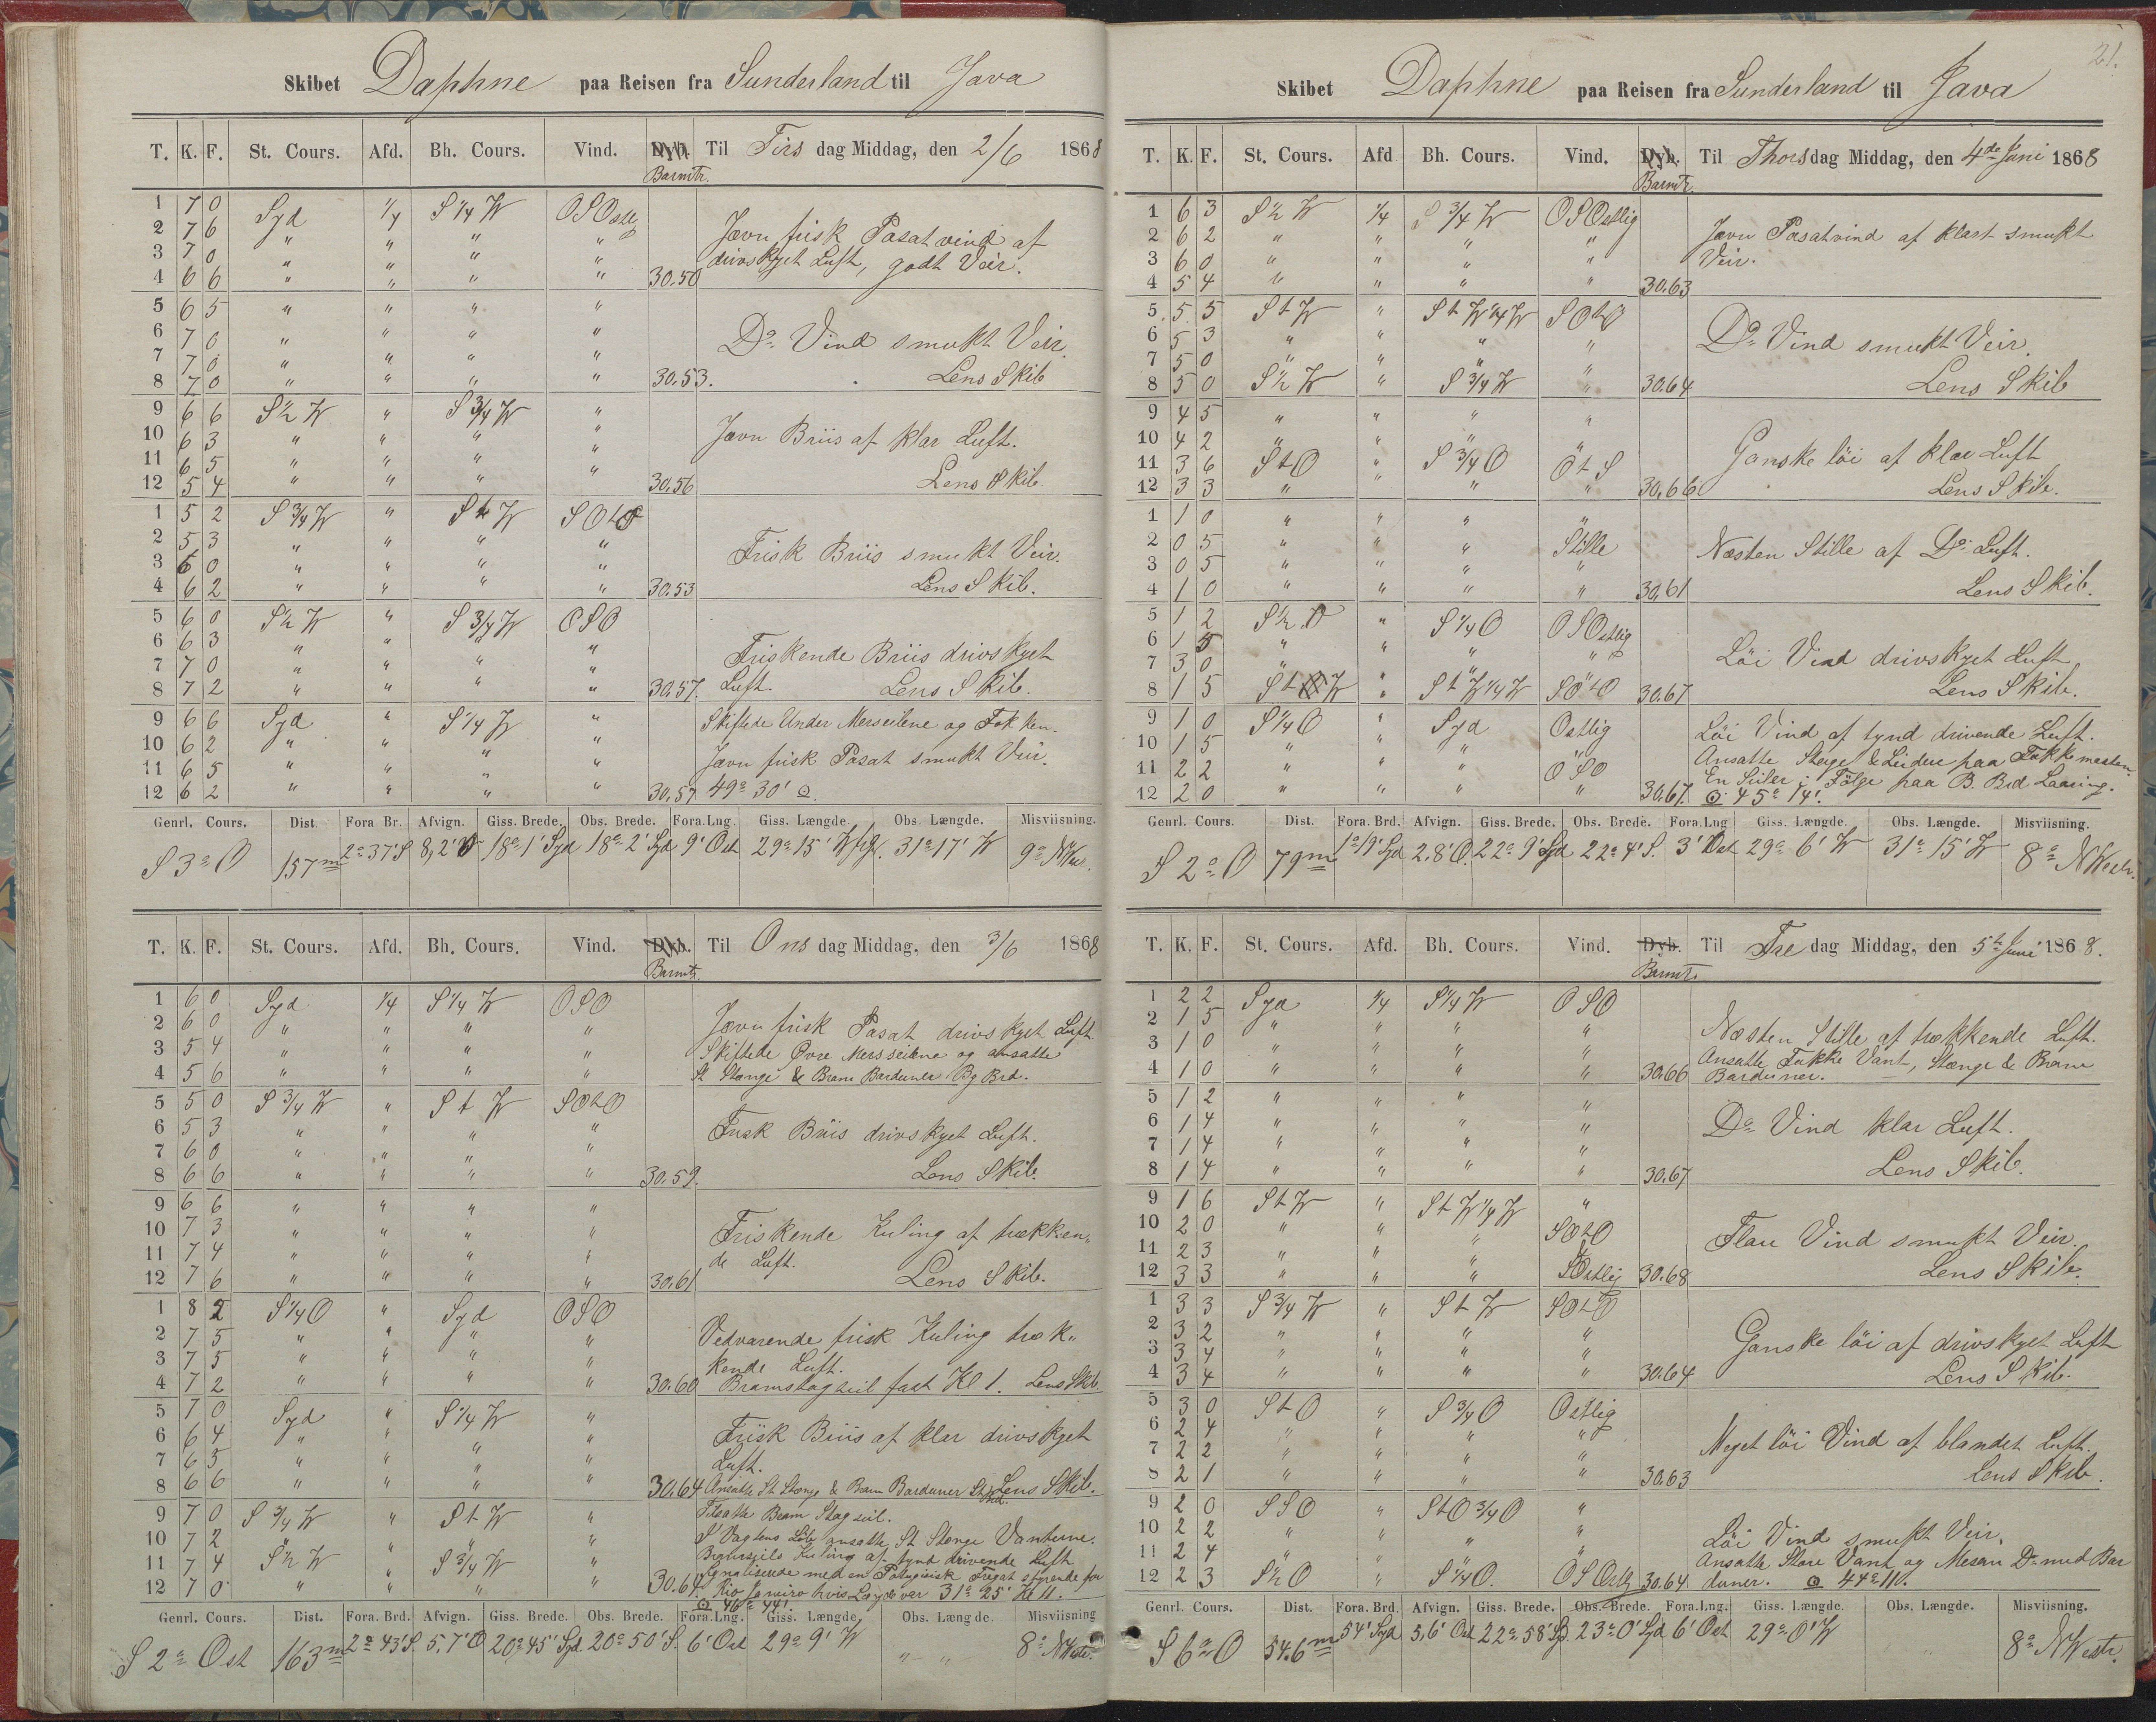 Skibet Daphne paa Reisen fra Sunderland til Java
T. K. F. St. Cours. Afd. Bh. Cours. Vind. Dyb. Barmtr. Til Tirsdag Middag, den 2/6 1868
1 7 0 Syd 1/4 S 1/4 W OSOstlig
2 7 6 " " " "
3 7 0 " " " "
4 6 6 " " " " 30.50
Jævn frisk Pasatvind af
drivskyet Luft, godt Veir.
5 6 5 " " " "
6 7 0 " " " "
7 7 0 " " " "
8 7 0 " " " " 30.53.
Do Vind smukt Veir.
Lens Skib
9 6 6 S 1/2 W " S 3/4 W "
10 6 3 " " " "
11 6 5 " " " "
12 5 4 " " " " 30.56
Jævn Briis af klar Luft.
Lens Skib.
1 5 2 S 3/4 W " S t W SOtO
2 5 3 " " " "
3 6 0 " " " "
4 6 2 " " " " 30.53
Frisk Briis smukt Veir.
Lens Skib.
5 6 0 S 1/2 W " S 3/4 W OSO
6 6 3 " " " "
7 7 0 " " " "
8 7 2 " " " " 30.57.
Friskende Briis drivskyet
Luft. Lens Skib.
9 6 6 Syd " S 1/4 W "
10 6 2 " " " "
11 6 5 " " " "
12 6 2 " " " " 30.57
Skiftede Under Merseilene og Fokken.
Jævn frisk Pasat smukt Veir.
49° 30' ⊙
Genrl. Cours. Dist. Fora Br. Afvign. Giss. Brede. Obs. Brede. Fora.Lng. Giss. Længde. Obs. Længde. Misviisning.
S 3° O 157m 2° 37' S 8,2' O 18° 1' Syd 18° 2' Syd 9' Ost 29° 15' W 31° 17' W 9°
T. K. F. St. Cours. Afd. Bh. Cours. Vind. Dyb. Barmtr. Til Onsdag Middag, den 3/6 1868
1 6 0 Syd 1/4 S 1/4 W OSO
2 6 0 " " " "
3 5 4 " " " "
4 5 6 " " " "
Jævn frisk Pasat drivskyet Luft.
Skiftede Øvre Mersseilene og ansatte
St Stænge & Bram Barduner Bg Brd.
5 5 0 S 3/4 W " S t W SOtO
6 5 3 " " " "
7 6 0 " " " "
8 6 6 " " " " 30.59.
Frisk Briis drivskyet Luft.
Lens Skib.
9 6 6 " " " "
10 7 3 " " " "
11 7 4 " " " "
12 7 6 " " " " 30.61
Friskende Kuling af trækken„
de Luft. Lens Skib.
1 8 2 S 1/4 O " Syd OSO
2 7 5 " " " "
3 7 5 " " " "
4 7 2 " " " " 30.60
Vedvarende frisk Kuling træk„
kende Luft.
Bramstagseil fast Kl 1. Lens Skib
5 7 0 Syd " S 1/4 W "
6 6 4 " " " "
7 6 5 " " " "
8 6 6 " " " " 30.64
Frisk Briis af klar drivskyet
Luft.
Ansatte St Stænge & Bram Barduner St Brd. Lens Skib.
9 7 0 S 3/4 W " S t W "
10 7 2 " " " "
11 7 4 S 1/2 W " S 3/4 W "
12 7 0 " " " " 30.64
Tilsatte Bram Stagseil.
I Vagtens Løb ansatte St Stænge Vantene.
Bramseils Kuling af tynd drivende Luft
Signaliserede med en Potugisisk Fregat styrende for
Rio Janeiro hvis Længde var 31° 25' Kl 11.
⊙ 46° 44'.
Genrl. Cours. Dist. Fora. Brd. Afvign. Giss. Brede. Obs. Brede. Fora.Lng. Giss. Længde Obs. Længde. Misviisning
S 2° Ost 163m 2° 43' S. 5,7' O 20° 45' Syd. 20° 50' S. 6' Ost 29° 9' W " " 8° N Westr.
21.
Skibet Daphne paa Reisen fra Sunderland til Java
T. K. F. St. Cours. Afd Bh. Cours. Vind. Dyb. Barmtr. Til Thorsdag Middag, den 4de Juni 1868
1 6 3 S 1/2 W 1/4 S 3/4 W OSOstlig
2 6 2 " " " "
3 6 0 " " " "
4 5 4 " " " " 30.63
Jævn Pasatvind af klart smukt
Veir.
5 5 5 S t W " S t W 1/4 W SOtO
6 5 3 " " " "
7 5 0 " " " "
8 5 0 S 1/2 W " S 3/4 W " 30.64
Do Vind smukt Veir.
Lens Skib
9 4 5 " " " "
10 4 2 " " " "
11 3 6 S t O " S 3/4 O O t S
12 3 3 " " " " 30.66
Ganske löi af klar Luft
Lens Skib.
1 1 0 " " " "
2 0 5 " " " Stille
3 0 5 " " " "
4 1 0 " " " " 30.61
Næsten Stille af Do Luft.
Lens Skib.
5 1 2 S 1/2 O " S 1/4 O OSOstlig
6 1 5 " " " "
7 3 0 " " " "
8 1 5 S t W " S t W 1/4 W SOtO 30.67
Löi Vind drivskyet Luft
Lens Skib.
9 1 0 S 1/4 O " Syd Ostlig
10 1 5 " " " "
11 2 2 " " " OSO
12 2 0 " " " " 30.67.
Löi Vind af tynd drivende Luft.
Ansatte Stage & Leidere paa Fokkemasten.
En Seiler i Følge paa B. Brd Laaring.
⊙ 45° 14'.
Genrl. Cours. Dist. Fora. Brd. Afvign. Giss. Brede. Obs. Brede. Fora.Lng Giss. Længde. Obs. Længde. Misviisning
S 2° O 79m 1° 19' Syd 2.8' O. 22° 9' Syd 22° 4' S. 3' Ost 29° 6' W 31° 15' W 8° N Westr.
T. K. F. St. Cours. Afd. Bh. Cours. Vind. Dyb. Barmtr. Til Fredag Middag, den 5te Juni 1868.
1 2 2 Syd 1/4 S 1/4 W OSO
2 1 5 " " " "
3 1 0 " " " "
4 1 0 " " " " 30.66
Næsten Stille af trækkende Luft.
Ansatte Fokke Vant, Stænge & Bram
Barduner.
5 1 2 " " " "
6 1 4 " " " "
7 1 4 " " " "
8 1 4 " " " " 30.67
Do Vind klar Luft.
Lens Skib.
9 1 6 S t W " S t W 1/4 W "
10 2 0 " " " SOtO
11 2 3 " " " "
12 3 3 " " " SOstlig 30.68
Flau Vind smukt Veir.
Lens Skib.
1 3 3 S 3/4 W " S t W SOtO
2 3 2 " " " "
3 3 4 " " " "
4 3 4 " " " " 30.64
Ganske löi af drivskyet Luft
Lens Skib.
5 3 0 S t O " S 3/4 O Ostlig
6 2 4 " " " "
7 2 2 " " " "
8 2 1 " " " " 30.63
Meget löi Vind af blandet Luft.
Lens Skib.
9 2 0 SSO " S t O 3/4 O "
10 2 2 " " " "
11 2 4 " " " "
12 2 3 S 1/2 O " S 1/4 O. OSOstlig 30.64
Löi Vind smukt Veir.
Ansatte Store Vant og Mesan Do med Bar
duner. ⊙ 44° 11'.
Genrl. Cours. Dist. Fora. Brd. Afvign. Giss. Brede. Obs. Brede. Fora.Lng. Giss. Længde. Obs. Længde. Misviisning.
S 6° O 54.6m 54' Syd 5,6' Ost 22° 58' Sd. 23° 0' Syd 6' Ost 29° 0' W 8° N Westr.